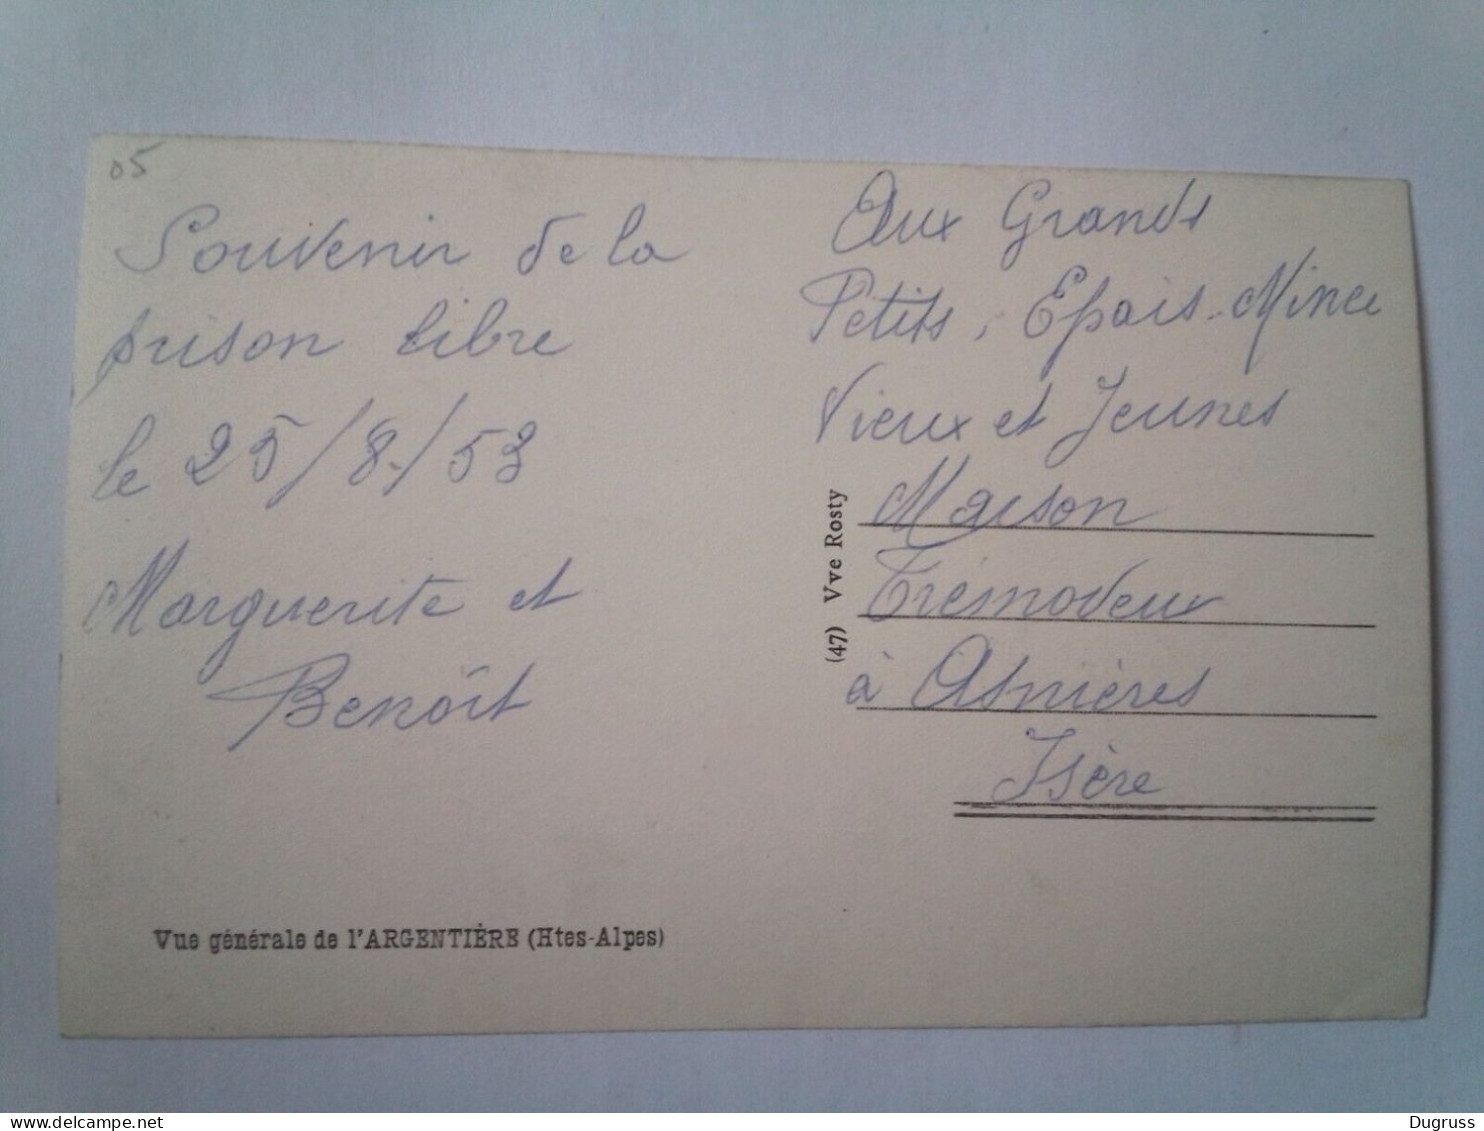 05
Souvenir de la
prison libre
le 25/8/53
Marguerite et
Benoît
Vue générale de l'ARGENTIÈRE (Htes-Alpes)
(47) Vve Rosty
Aux Grands
Petits, Epais-Mince
Vieux et Jeunes
Maison
Tremodeux
à Asnières
Isère
Dugruss